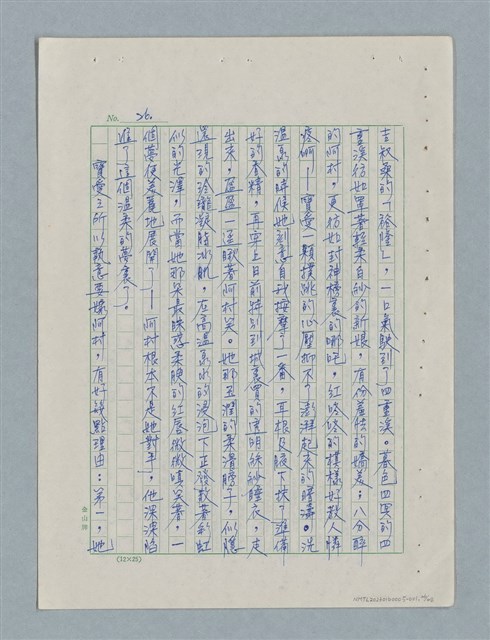 No. 26.
圭叔桑的「裕隆」,一口氣駛到了四重溪。暮色四罩的四
重溪彷如罩著輕柔白紗的新娘,有份羞怯的嬌羞;八分醉
的阿村,更彷如封神榜裏的哪吒,紅咚咚的模樣好教人憐
疼啊!——寶愛一顆撲跳的心壓抑不了澎湃起來的情濤。洗
溫泉的時候她刻意自我按摩了一番,耳根及腋下抹了準備
好的香精,再穿上日前特別到城裏買的透明絲紗睡衣,走
出來,盈盈一遥瞅著阿村笑。她那玉潤的柔滑膀子,似隱
還現的冷艷凝脂冰肌,在高溫泉水的浸泡下正發散著彩虹
似的光澤,而當她那朵最眩惑柔腴的紅唇微微嘆笑著,一
個夢便美麗地展開了!——阿村根本不是她對手,他深深陷
進了這個溫柔的夢裏了。
寶愛之所以執意要嫁阿村,有好幾點理由:第一,她
金山牌
(12×25)